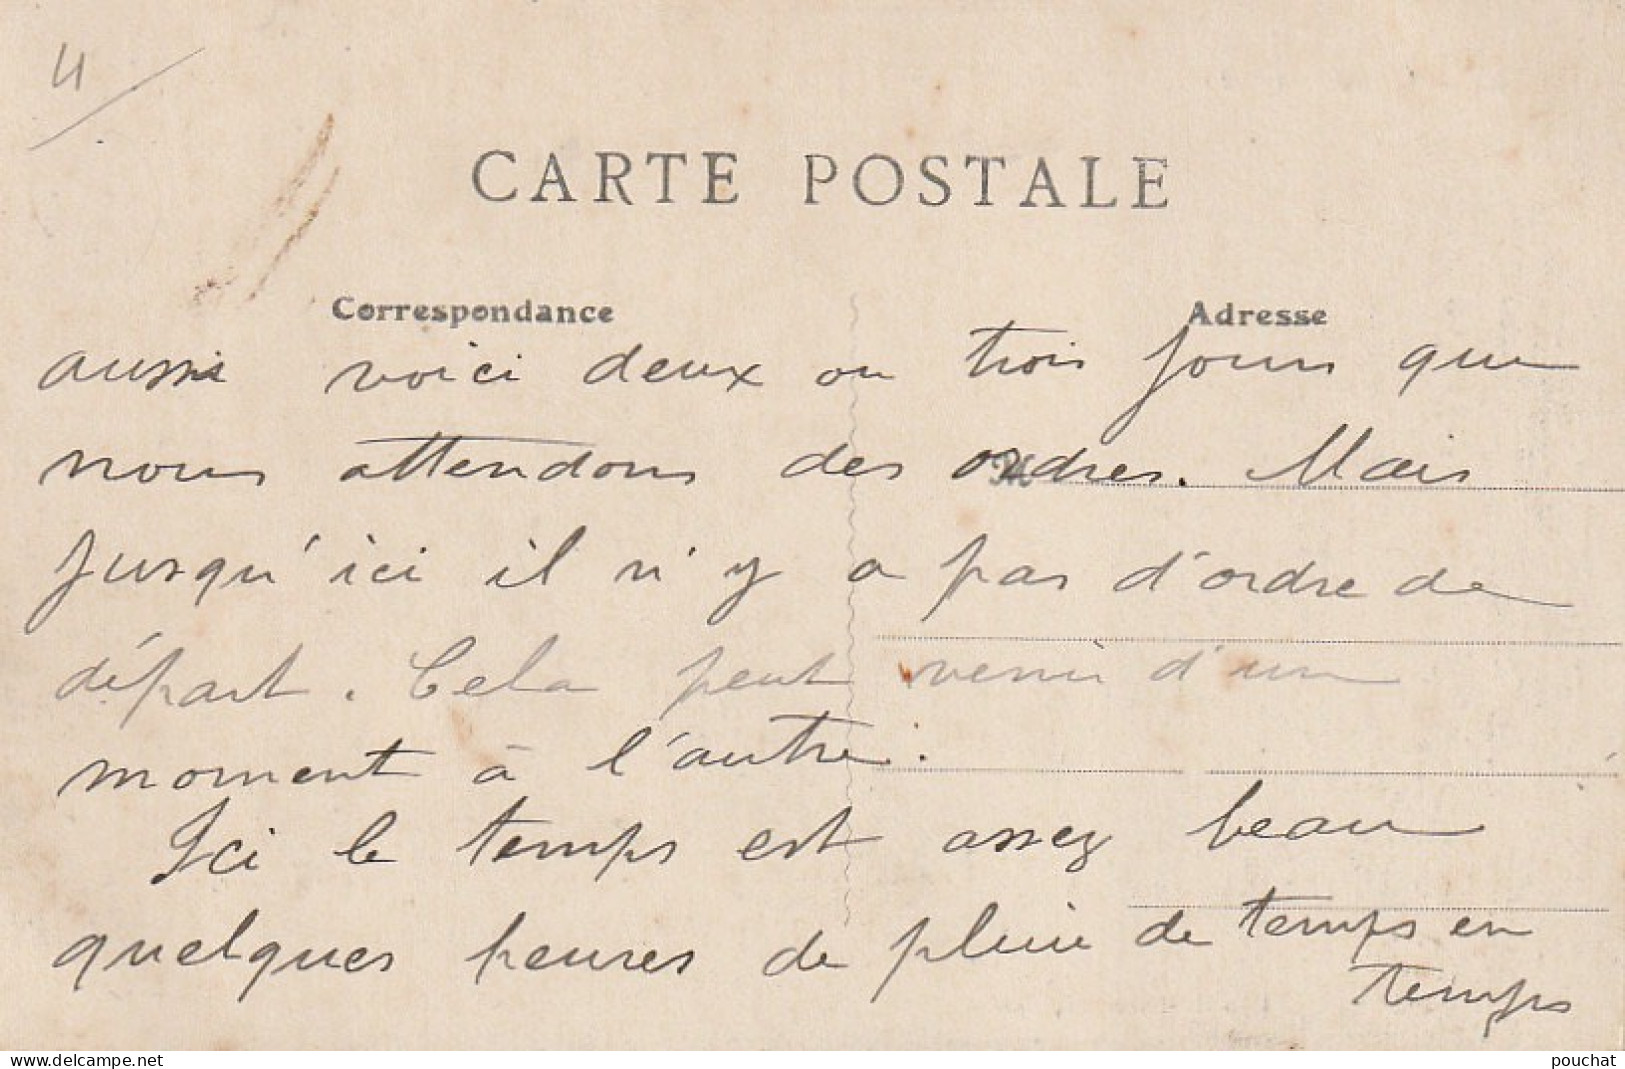 4
CARTE POSTALE
Correspondance Adresse
aussi voici deux ou trois jours que
nous attendons des ordres. Mais
jusqu'ici il n'y a pas d'ordre de
départ. Cela peut venir d'un
moment à l'autre.
Ici le temps est assez beau
quelques heures de pluie de temps en
temps
www.delcampe.net pouchat